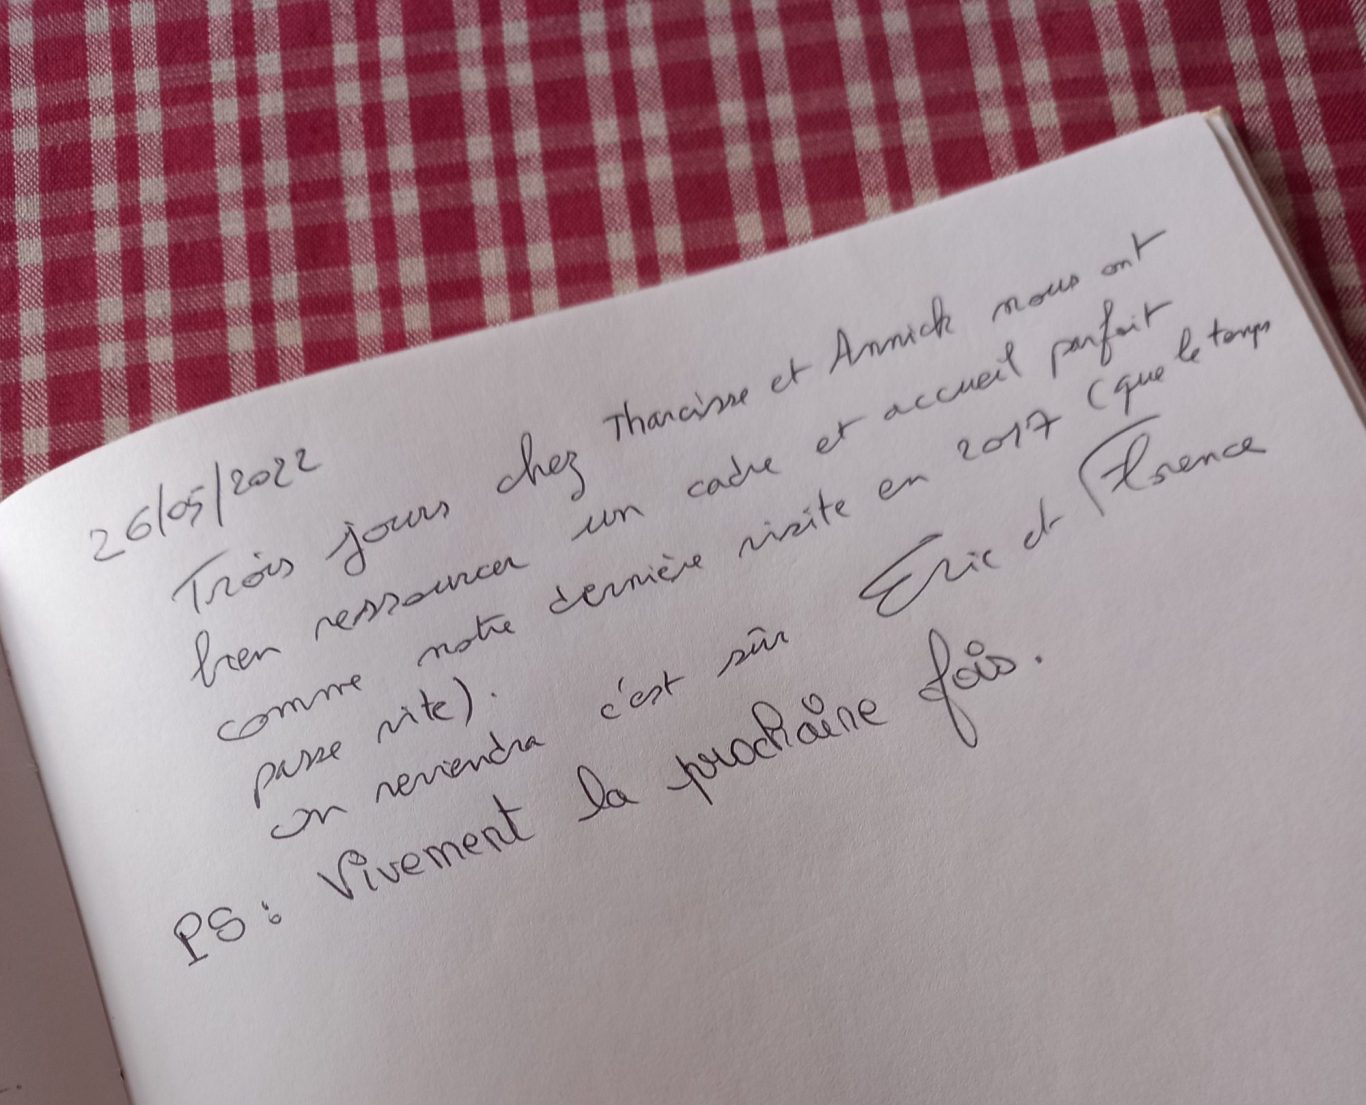 26/05/2022
Trois jours chez Tharcisse et Annick nous ont
bien ressourcer un cadre et accueil parfait
comme notre dernière visite en 2017 (que le temps
passe vite).
on reviendra c'est sûr Eric et Florence
PS: Vivement la prochaine fois.